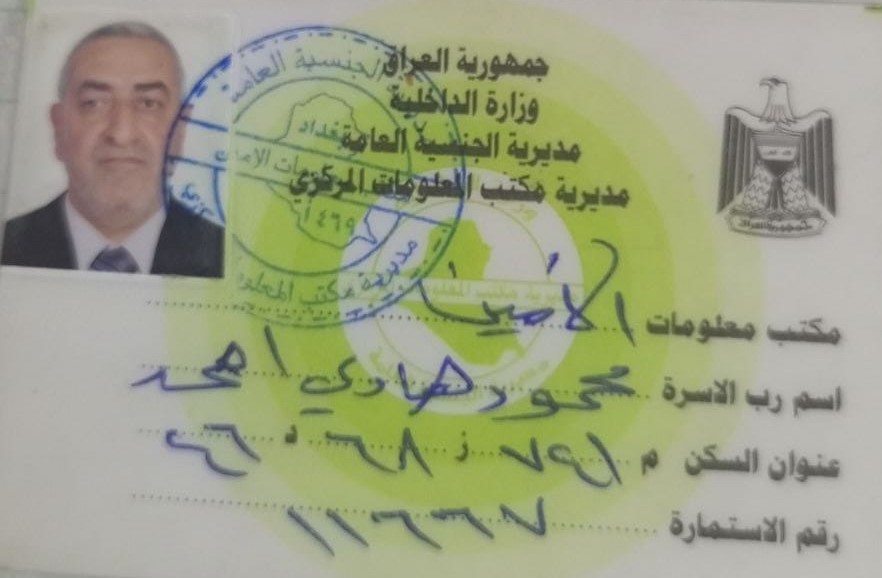 جمهورية العراق
وزارة الداخلية
مديرية الجنسية العامة
مديرية مكتب المعلومات المركزي
الجنسية العامة
بغداد
١٤٦٩
مديرية مكتب المعلو
مكتب معلومات الأمين
اسم رب الاسرة محمود هادي احمد
عنوان السكن م ٧٤١ ز ٦٨ د ٤٦
رقم الاستمارة ١١٦٦٧